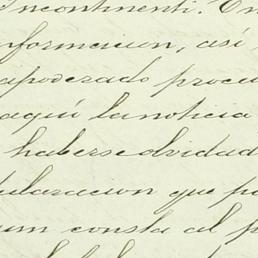 Incontinenti. En
nformacion, así
apoderado procu
aquí la noticia
haberse olvidad
claracion que po
um consta al p